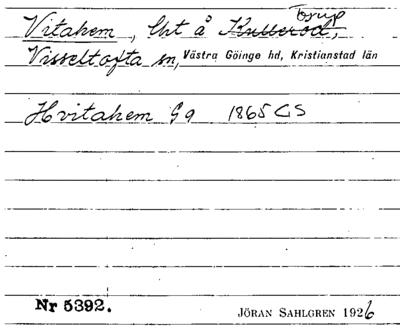 Vitahem, lht å Kulleröd, Torup
Visseltofta sn, Västra Göinge hd, Kristianstad län
Hvitahem Gq 1865 GS
Nr 5392.
JÖRAN SAHLGREN 1926